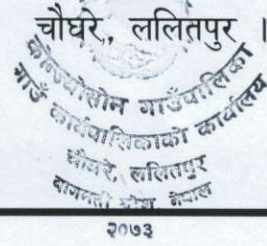 चौघरे, ललितपुर ।
कोन्ज्योसोम गाउँपालिका
गाउँ कार्यपालिकाको कार्यालय
चौघरे, ललितपुर
बागमती प्रदेश, नेपाल
२०७३